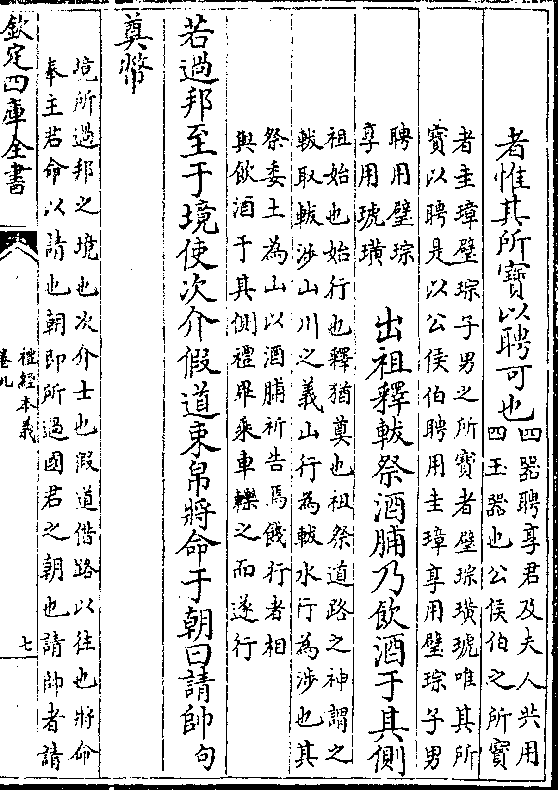 者惟其所寶以聘可也四器聘享君及夫人共用
四玉器也公侯伯之所寶
者圭璋璧琮子男之所寶者璧琮璜琥唯其所
寶以聘是以公侯伯聘用圭璋享用璧琮子男
聘用璧琮
享用琥璜
出祖釋軷祭酒脯乃飲酒于其側
祖始也始行也釋猶奠也祖祭道路之神謂之
軷取軷涉山川之義山行為軷水行為涉也其
祭委土為山以酒脯祈告焉餞行者相
與飲酒于其側禮畢乘車轢之而遂行
若過邦至于境使次介假道束帛將命于朝曰請帥句
奠幣
境所過邦之境也次介士也假道借路以往也將命
奉主君命以請也朝即所過國君之朝也請帥者請
欽定四庫全書
禮經本義
卷九
七